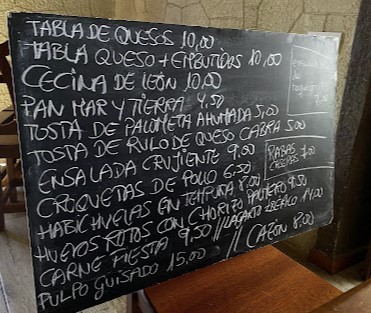 TABLA DE QUESOS 10,00
TABLA QUESO + EMBUTIDOS 10,00
CECINA DE LEÓN 10,00
PAN MAR Y TIERRA 4.50
TOSTA DE PALOMETA AHUMADA 5,00
TOSTA DE RULO DE QUESO CABRA 5.00
ENSALADA CRUJIENTE 9,00
RABAS
CASERAS 7.00
CROQUETAS DE POLLO 6.50
HABICHUELAS EN TEMPURA 8.00
HUEVOS ROTOS CON CHORIZO 9.50
CARNE FIESTA 9,50 // LAGARTO IBÉRICO 14,00
PULPO GUISADO 15,00 // CAZÓN 8.00